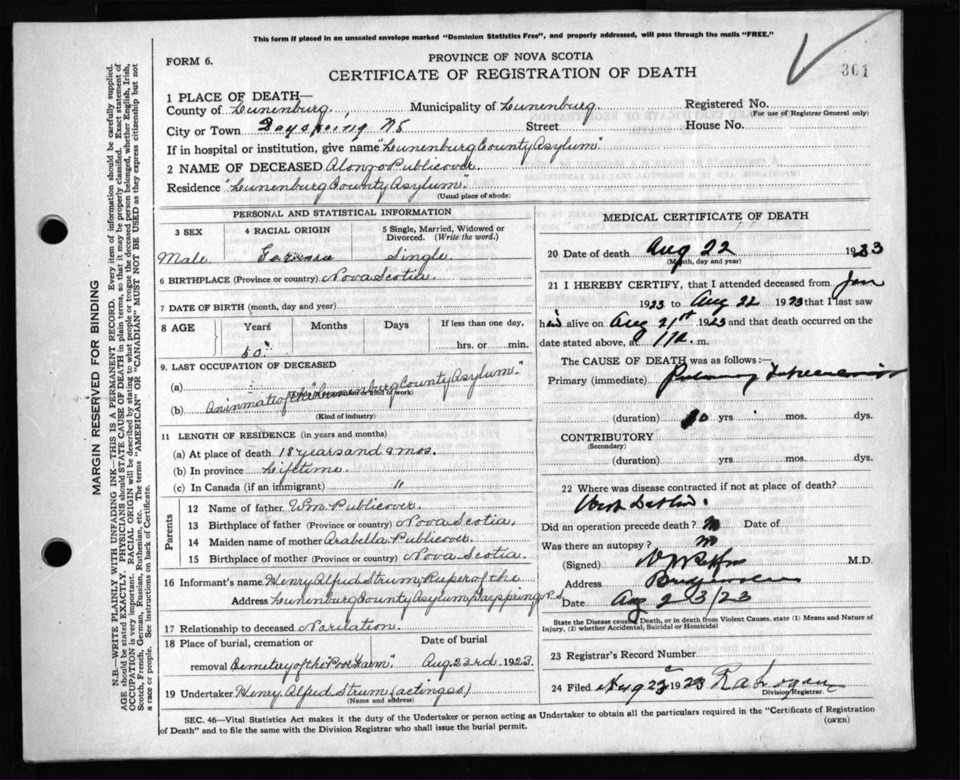 This form if placed in an unsealed envelope marked "Dominion Statistics Free", and properly addressed, will pass through the mails "FREE."
FORM 6.
PROVINCE OF NOVA SCOTIA
CERTIFICATE OF REGISTRATION OF DEATH
301
1 PLACE OF DEATH—
County of Lunenburg, Municipality of Lunenburg Registered No.
(For use of Registrar General only)
City or Town Dayspring NS Street House No.
If in hospital or institution, give name "Lunenburg County Asylum"
2 NAME OF DECEASED Alonzo Publicover.
Residence "Lunenburg County Asylum".
(Usual place of abode)
PERSONAL AND STATISTICAL INFORMATION
3 SEX 4 RACIAL ORIGIN 5 Single, Married, Widowed or Divorced. (Write the word.)
Male German Single
6 BIRTHPLACE (Province or country) Nova Scotia.
7 DATE OF BIRTH (month, day and year)
8 AGE Years Months Days If less than one day,
50 hrs. or min.
9. LAST OCCUPATION OF DECEASED
(a)
(b) An inmate of the "Lunenburg County Asylum."
(Kind of industry)
11 LENGTH OF RESIDENCE (in years and months)
(a) At place of death 18 years and mos.
(b) In province Lifetime.
(c) In Canada (if an immigrant) "
Parents
12 Name of father Wm. Publicover.
13 Birthplace of father (Province or country) Nova Scotia.
14 Maiden name of mother Arabella Publicover
15 Birthplace of mother (Province or country) Nova Scotia
16 Informant's name Henry Alfred Strum, Keeper of the
Address Lunenburg County Asylum, Dayspring N.S.
17 Relationship to deceased No relation.
18 Place of burial, cremation or Date of burial
removal Cemetery of the Poor Farm" Aug. 23rd. 1923.
19 Undertaker Henry Alfred Strum (acting as)
(Name and address)
MEDICAL CERTIFICATE OF DEATH
20 Date of death Aug 22 1923
(Month, day and year)
21 I HEREBY CERTIFY, that I attended deceased from Jan
1923 to Aug 22 1923 that I last saw
him alive on Aug 21st 1923 and that death occurred on the
date stated above, at m.
The CAUSE OF DEATH was as follows:—
Primary (immediate) Pulmonary Tuberculosis
(duration) yrs mos. dys.
CONTRIBUTORY
(Secondary)
(duration) yrs. mos. dys.
22 Where was disease contracted if not at place of death?
Did an operation precede death? No Date of
Was there an autopsy? No
(Signed) M.D.
Address
Date Aug 23/23
State the Disease causing Death, or in death from Violent Causes, state (1) Means and Nature of Injury, (2) whether Accidental, Suicidal or Homicidal
23 Registrar's Record Number
24 Filed Aug 23 1923
Division Registrar.
SEC. 46—Vital Statistics Act makes it the duty of the Undertaker or person acting as Undertaker to obtain all the particulars required in the "Certificate of Registration
of Death" and to file the same with the Division Registrar who shall issue the burial permit.
(OVER)
MARGIN RESERVED FOR BINDING
N.B.—WRITE PLAINLY WITH UNFADING INK—THIS IS A PERMANENT RECORD. Every item of information should be carefully supplied.
AGE should be stated EXACTLY. PHYSICIANS should STATE CAUSE OF DEATH in plain terms, so that it may be properly classified. Exact statement of
OCCUPATION is very important. RACIAL ORIGIN will be described by stating to what people or tongue the deceased person belonged, whether English, Irish,
Scotch, French, German, Russian, Ruthenian, etc. The terms "AMERICAN" or "CANADIAN" MUST NOT BE USED as they express citizenship but not
a race or people. See instructions on back of Certificate.